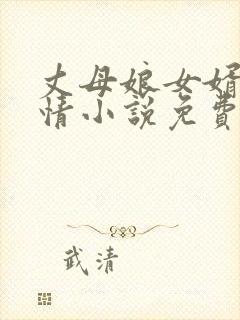 丈母娘女婿
情小說免費
武清